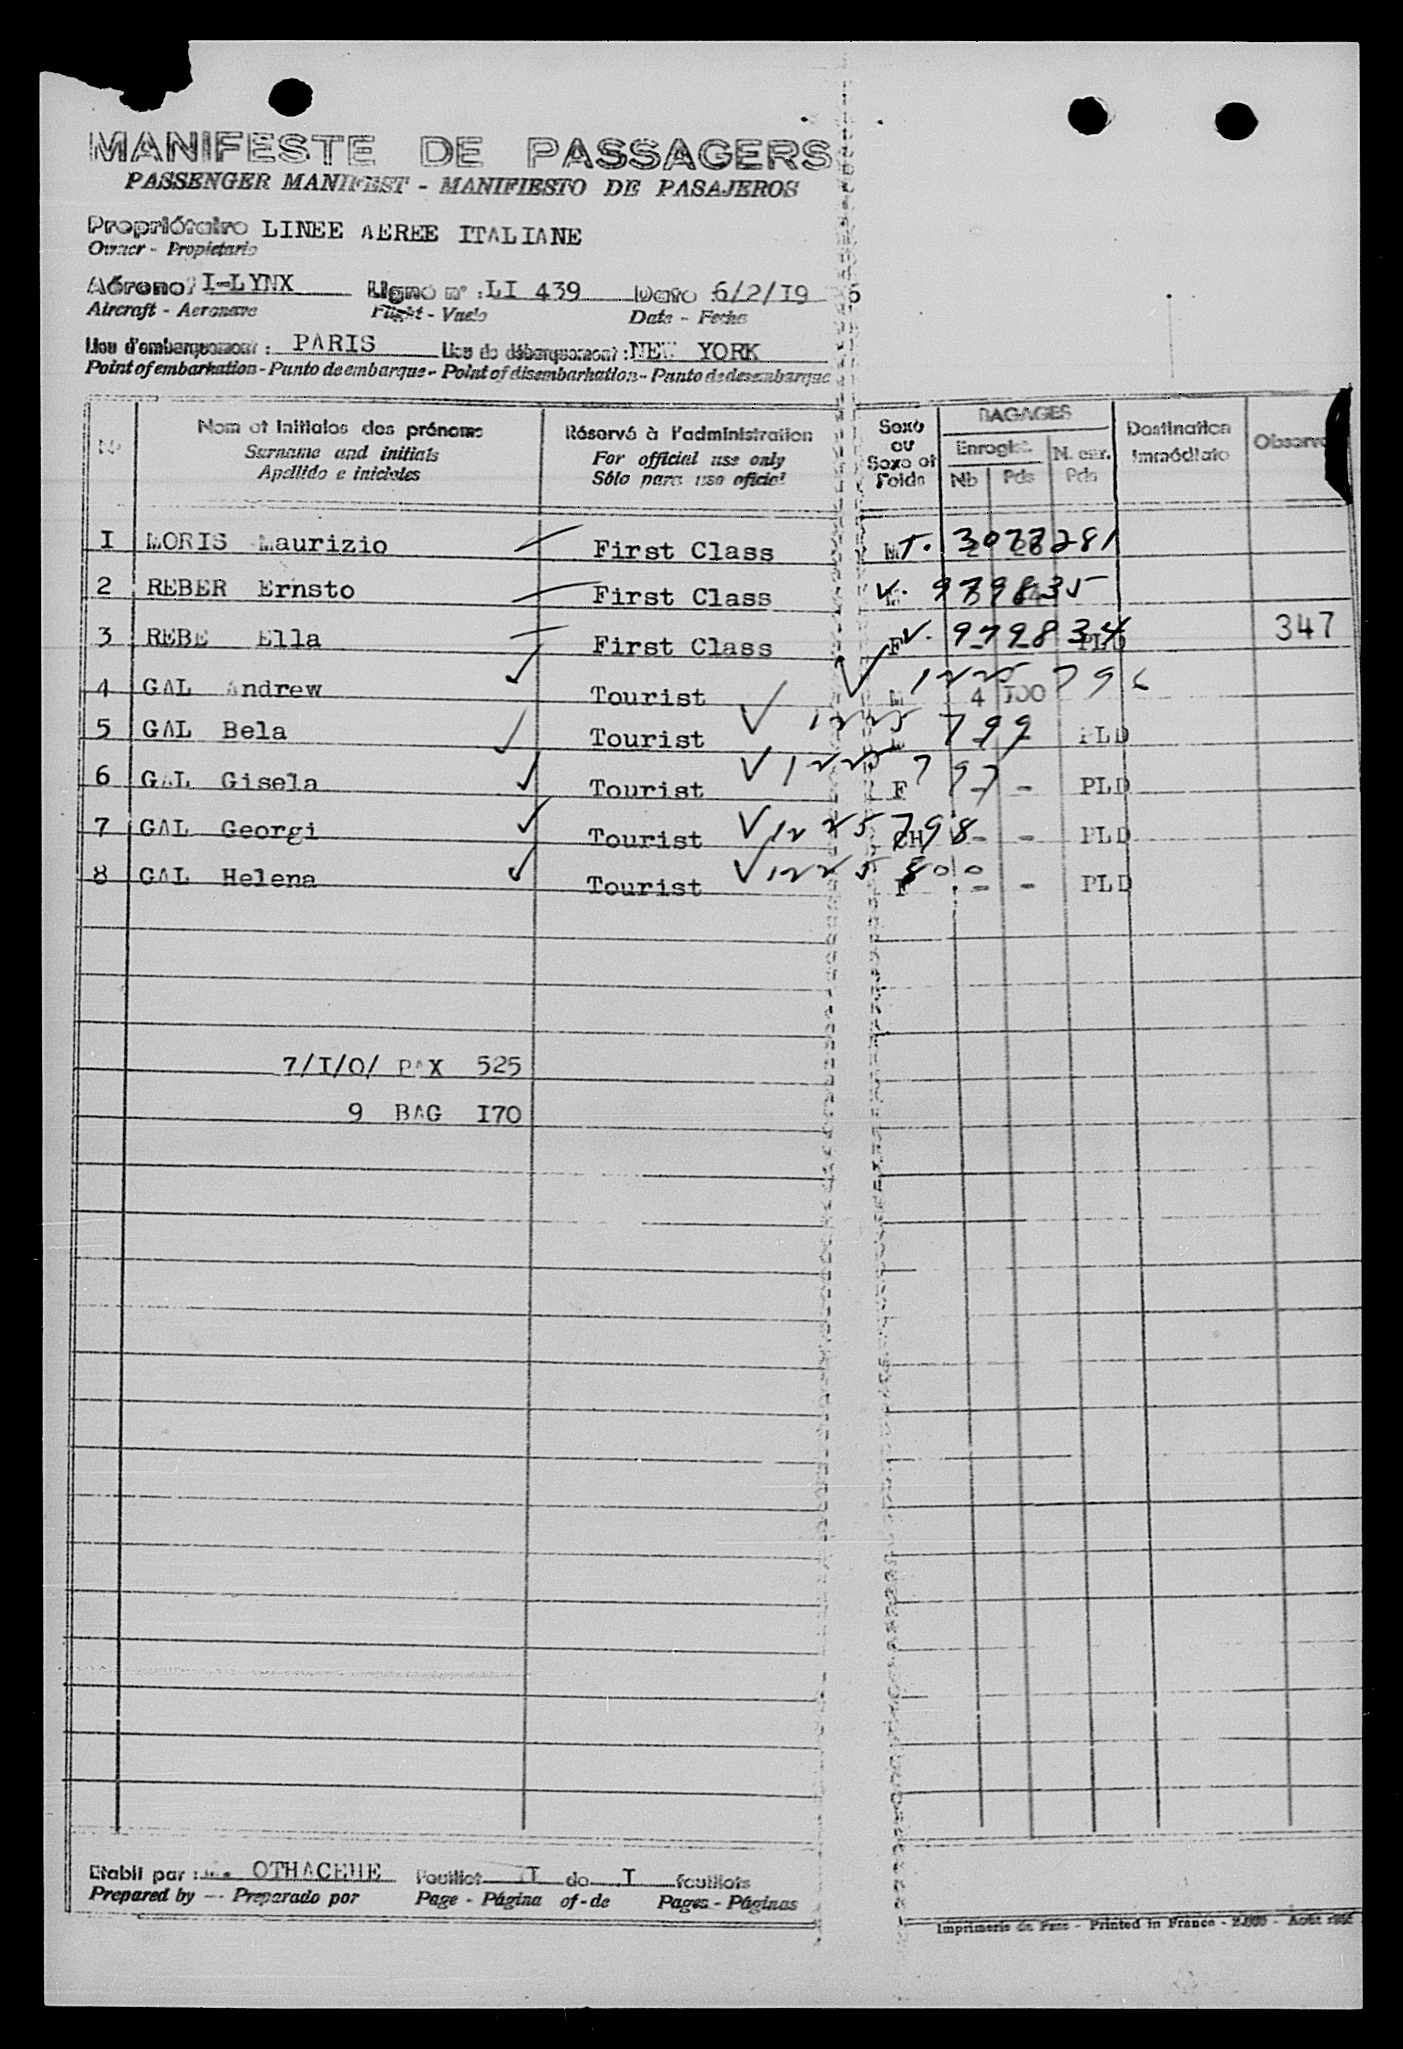 MANIFESTE DE PASSAGERS
PASSENGER MANIFEST - MANIFIESTO DE PASAJEROS
Propriétaire LINEE AEREE ITALIANE
Owner - Propietario
Aéronef I-LYNX Ligne n° : LI 439 Date 6/2/I9 6
Aircraft - Aeronave Flight - Vuelo Date - Fecha
Lieu d'embarquement : PARIS Lieu de débarquement : NEW YORK
Point of embarkation - Punto de embarque - Point of disembarkation - Punto de desembarque
N° Nom et initiales des prénoms Réservé à l'administration Sexe ou Sexe et Poids BAGAGES Destination immédiate Observa
Surname and initials For official use only Enregist. N. enr.
Apellido e iniciales Sólo para uso oficial Nb Pds Pds
I MORIS Maurizio First Class M T. 3077281
2 REBER Ernsto First Class V. 979835
3 REBE Ella First Class F V. 979834 PLD 347
4 GAL Andrew Tourist ✓ M 4 I00 1225796
5 GAL Bela Tourist ✓ 1225799 - PLD
6 GAL Gisela Tourist ✓ 1225797 F - - PLD
7 GAL Georgi Tourist ✓ 1225798 CH - - PLD
8 GAL Helena Tourist ✓ 1225800 F - - PLD
7/I/0/ PAX 525
9 BAG I70
Etabli par : OTHACEHE Feuillet I de I feuillets
Prepared by - Preparado por Page - Página of - de Pages - Páginas
Printed in France